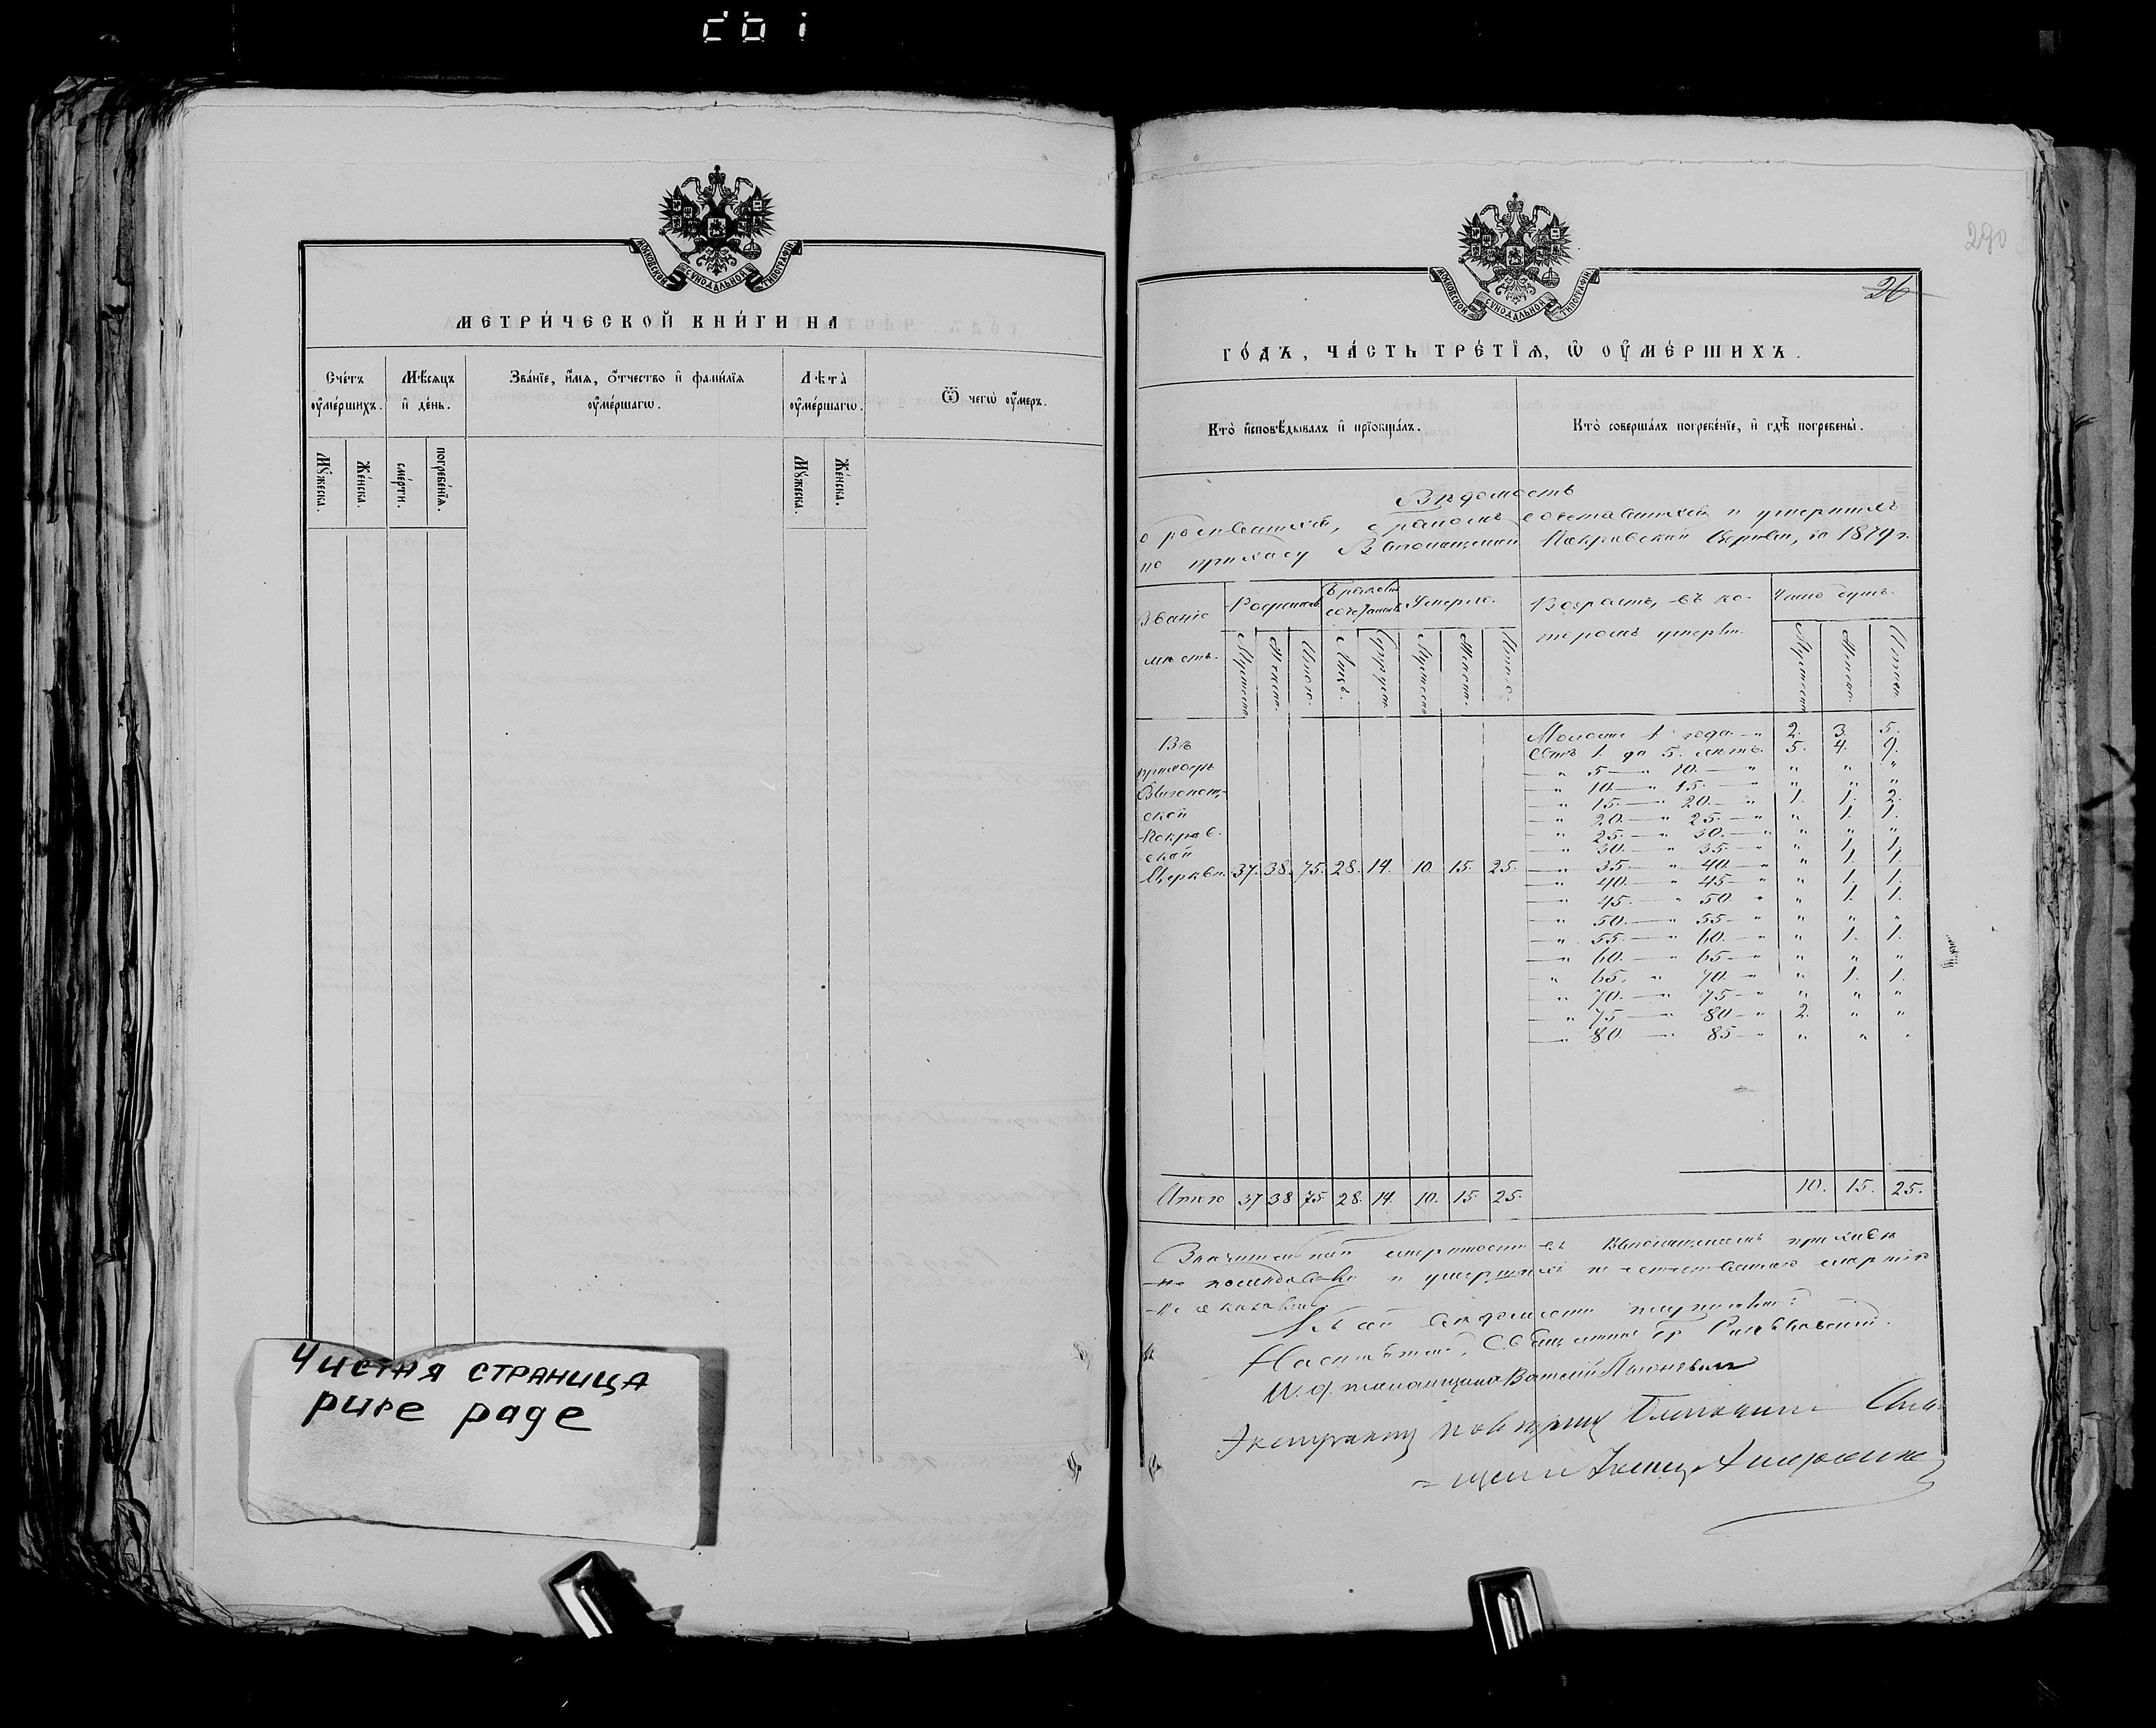 МОСКОВСКОЙ СУНОДАЛЬНОЙ ТИПОГРАФІИ
МЕТРИ́ЧЕСКОЙ КНИ́ГИ НА
Сче́тъ оу҆ме́ршихъ.
Мѣ́сяцъ и҆ де́нь.
Зва́нїе, и҆́мѧ, ѻ҆́тчество и҆ фами́лїѧ
оу҆ме́ршагѡ.
Лѣ́та̀ оу҆ме́ршагѡ.
Ѿ чегѡ̀ оу҆́меръ.
Мꙋ́жеска.
Же́нска.
сме́рти.
погребе́нїѧ.
Мꙋ́жеска.
Же́нска.
Чистая страница
pure page
290
26
МОСКОВСКОЙ СУНОДАЛЬНОЙ ТИПОГРАФІИ
ГО́ДЪ, ЧА́СТЬ ТРЕ́ТЇѦ, Ѡ҆ ОУ҆МЕ́РШИХЪ.
Кто̀ и҆сповѣ́дывалъ и҆ прїѡбща́лъ.
Кто̀ соверша́лъ погребе́нїе, и҆ гдѣ̀ погребены̀.
Вѣдомость
о родившихся, бракомъ сочетавшихся и умершихъ
по приходу Покровской Церкви, за 1879 г.
Званіе мѣстъ.
Родилось
Браковъ сочетаныхъ
Умерло.
Возрастъ, въ ко-
торомъ умерли.
Число душъ.
Мужеска
Женска.
Итого.
Лицъ.
Мужеска
Женска.
Итого.
Мужеска
Женска.
Итого.
Въ
приходѣ
ской
Покров-
ской
Церкви. 37. 38. 75. 28. 14. 10. 15. 25.
Моложе 1 года — " 2. 3. 5.
Отъ 1 до 5. лѣтъ. 5. 4. 9.
— " 5 — " 10. — " " " "
— " 10. — " 15. — " " " "
— " 15. — " 20. — " 1. 1. 2.
— " 20. — " 25. — " " 1. 1.
— " 25. — " 30. — " " " "
— " 30. — " 35. — " " 1. 1.
— " 35 — " 40. — " " 1. 1.
— " 40. — " 45 — " " 1. 1.
— " 45. — " 50. " " 1. 1.
— " 50. — " 55 — " " " "
— " 55. — " 60. — " " 1. 1.
— " 60. — " 65 — " " " "
" 65. " 70. — " " 1. 1.
" 70. — " 75 — " " " "
— " 75 — " 80 — " 2. " "
— " 80. — " 85 — " " " "
Итого 37 38 75. 28. 14. 10. 15. 25.
10. 15. 25.
Значительной смертности въ приходѣ
не послѣдовало и умершихъ не естественною смертію
не оказалось.
Къ сей вѣдомости подписались:
Настоятель, Священникъ
И. д. псаломщика Василій